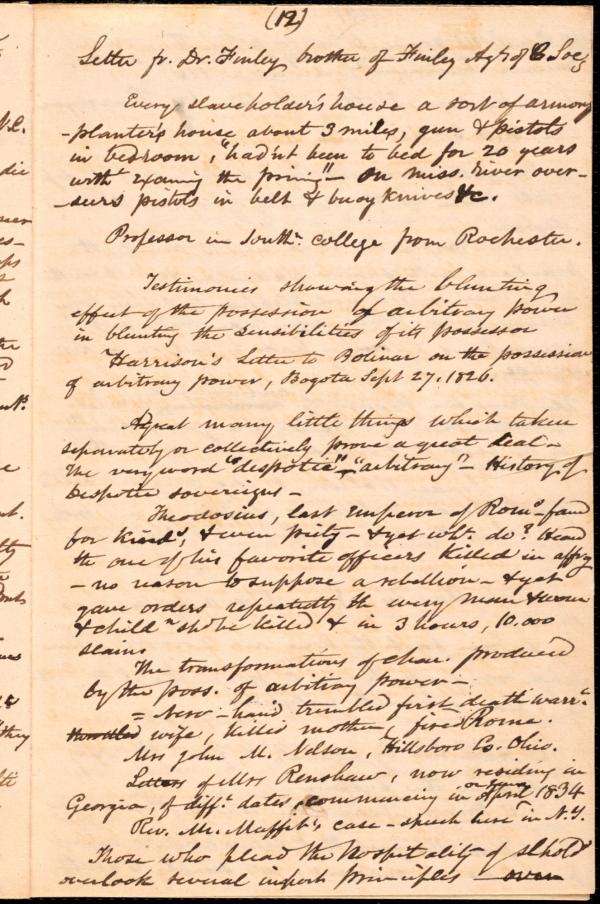 (12)
Letter fr. Dr. Finley brother of Finley Agt of C Socy
Every slaveholder's house a sort of armory
-planter's house about 3 miles, gun & pistols
in bedroom, "hadn't been to bed for 20 years
witht examing the priming" - On Miss. river over-
-seers pistols in belt & buoy knives &c.
Professor in Southn. college from Rochester.
Testimonies showing the blunting
effect of the possession of arbitrary power
in blunting the sensibilities of its possessor
Harrison's Letter to Bolivar on the possession
of arbitrary power, Bogota Sept 27, 1826.
A great many little things which taken
separately or collectively prove a great deal -
The very word "despotic" - "arbitrary" - History of
Despotic sovereigns -
Theodosius, last Emperor of Rome - famd
for kinds, & even piety - & yet wht. do? Heard
tht one of his favorite officers killed in affray
- no reason to suppose a rebellion - & yet
gave orders repeatedly tht every man & woman
& child shd be killed & in 3 hours, 10.000
slain
The transformations of char. produced
by the poss. of arbitray power -
= Nero - hand trembled first death warrt.
wife, killed mother, fired Rome.
Mrs John M. Nelson, Hillsboro Co. Ohio.
Letters of Mrs Renshaw, now residing in
Georgia, of difft. dates, commencing in April 1834
Rev. Mr. Maffit's case - speech here in N.Y.
Those who plead the Hospitality of slhold
overlook several import principles - over